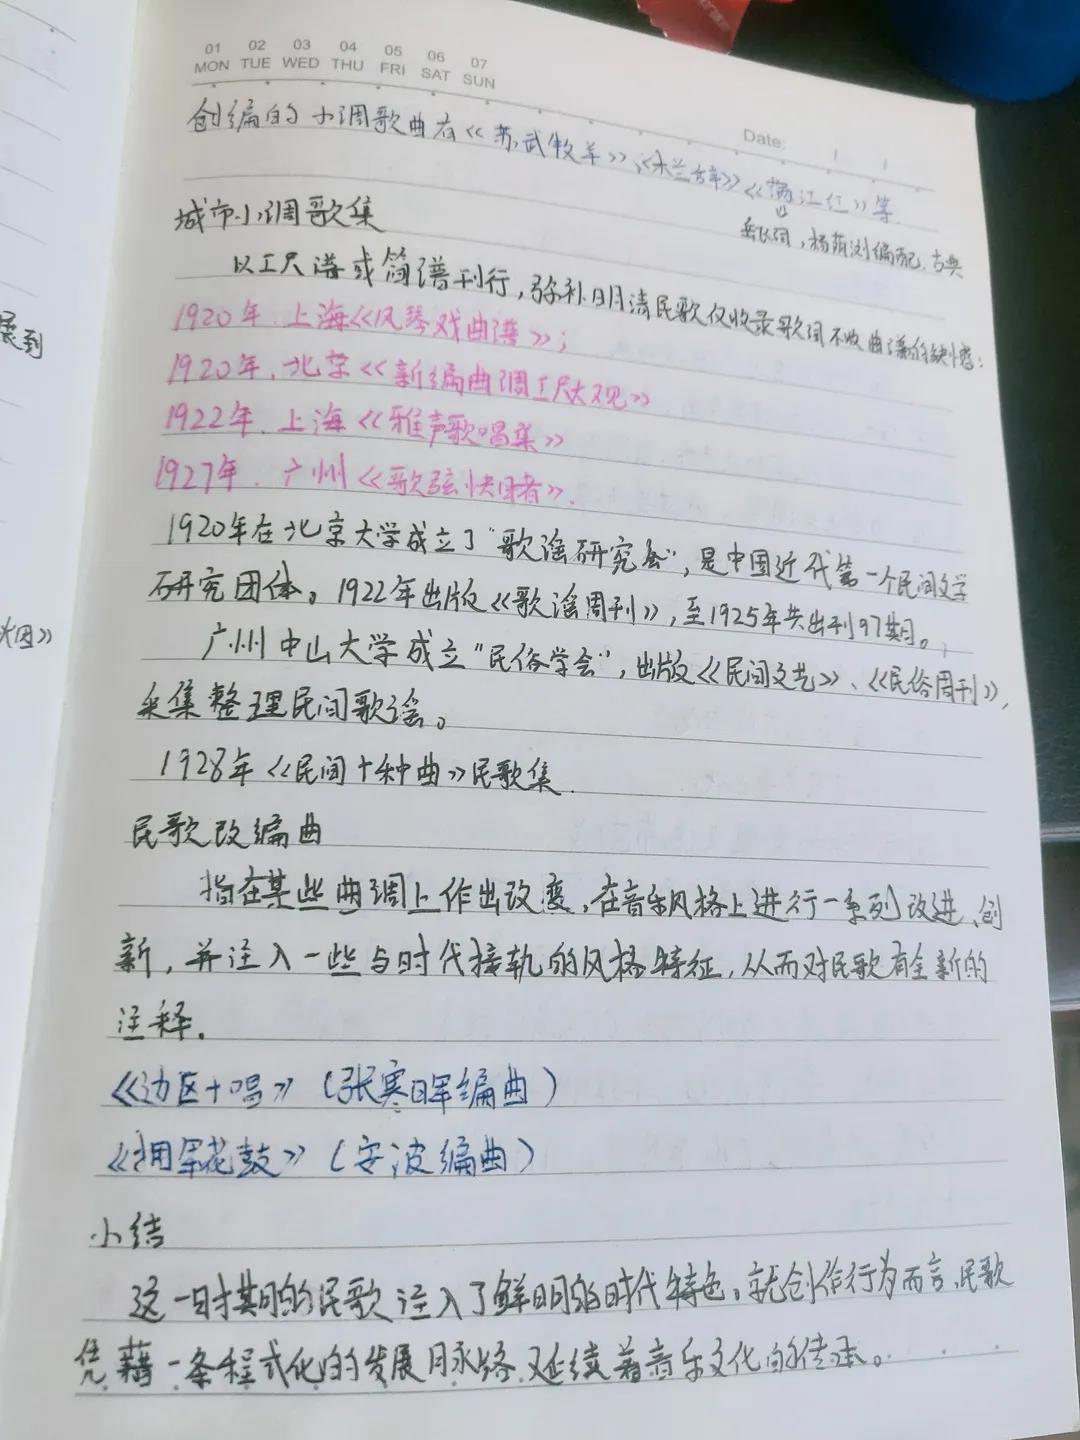 01 02 03 04 05 06 07
MON TUE WED THU FRI SAT SUN
Date:
创编的小调歌曲有《苏武牧羊》、《木兰辞》《满江红》等
岳飞词，杨荫浏编配.古典
城市小调歌集
以工尺谱或简谱刊行，弥补明清民歌仅收录歌词不收曲谱的缺憾：
1920年.上海《风琴戏曲谱》；
1920年.北京《新编曲调工尺大观》
1922年.上海《雅声歌唱集》
1927年.广州《歌弦快睹》.
1920年在北京大学成立了"歌谣研究会"，是中国近代第一个民间文学
研究团体。1922年出版《歌谣周刊》，至1925年共出刊97期。
广州中山大学成立"民俗学会"，出版《民间文艺》、《民俗周刊》，
采集整理民间歌谣。
1928年《民间十种曲》民歌集.
民歌改编曲
指在某些曲调上作出改变，在音乐风格上进行一系列改进、创
新，并注入一些与时代接轨的风格特征，从而对民歌有全新的
注释.
《边区十唱》（张寒晖编曲）
《拥军花鼓》（安波编曲）
小结
这一时期的民歌注入了鲜明的时代特色。就创作行为而言，民歌
凭藉一条程式化的发展脉络延续着音乐文化的传承。
展到